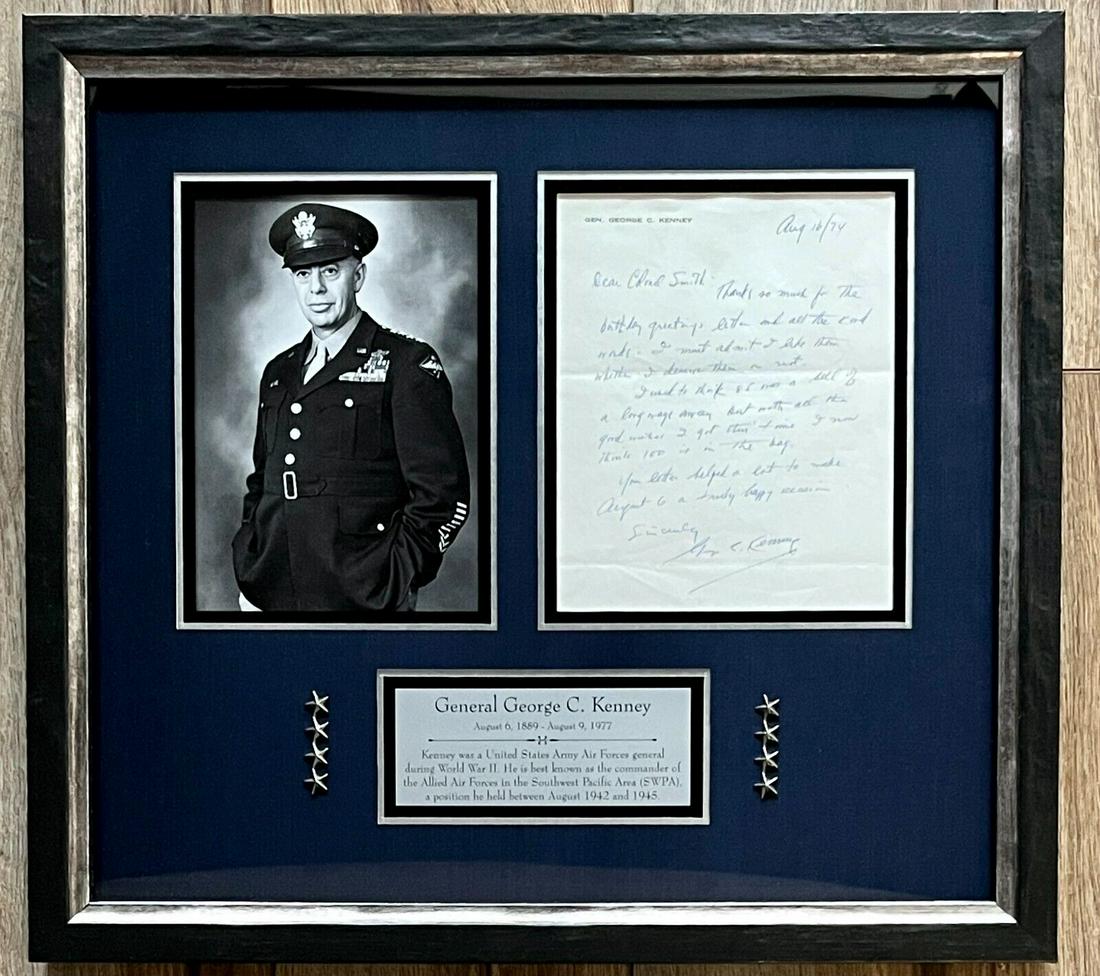 GEN. GEORGE C. KENNEY
Aug 16/74
Dear Colonel Smith
Thanks so much for the
birthday greetings letter and all the kind
words. I must admit I like them
whether I deserve them or not.
I used to think 85 was a hell of
a long ways away but with all the
good wishes I got this time I now
think 100 is in the bag.
Your letter helped a lot to make
August 6 a truly happy occasion
Sincerely
George C. Kenney
General George C. Kenney
August 6, 1889 - August 9, 1977
Kenney was a United States Army Air Forces general
during World War II. He is best known as the commander of
the Allied Air Forces in the Southwest Pacific Area (SWPA),
a position he held between August 1942 and 1945.